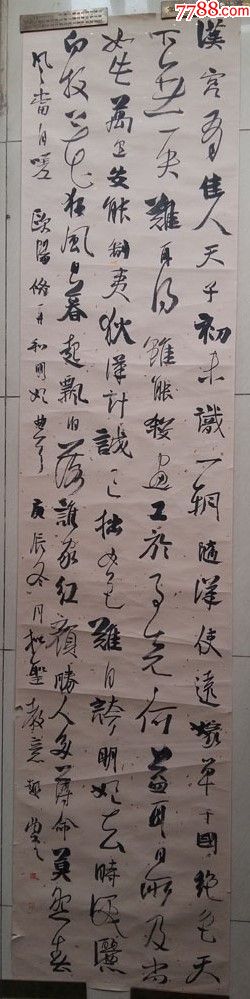 7788.com
漢宮有佳人天子初未識一朝隨漢使遠嫁單于國絕色天
下無一失難再得雖能殺畫工於事竟何益耳目所及尚
如此萬里安能制夷狄漢計誠已拙女色難自誇明妃去時淚灑
向枝上花狂風日暮起飄泊落誰家紅顏勝人多薄命莫怨春
風當自嗟 歐陽修再和明妃曲 庚辰冬月